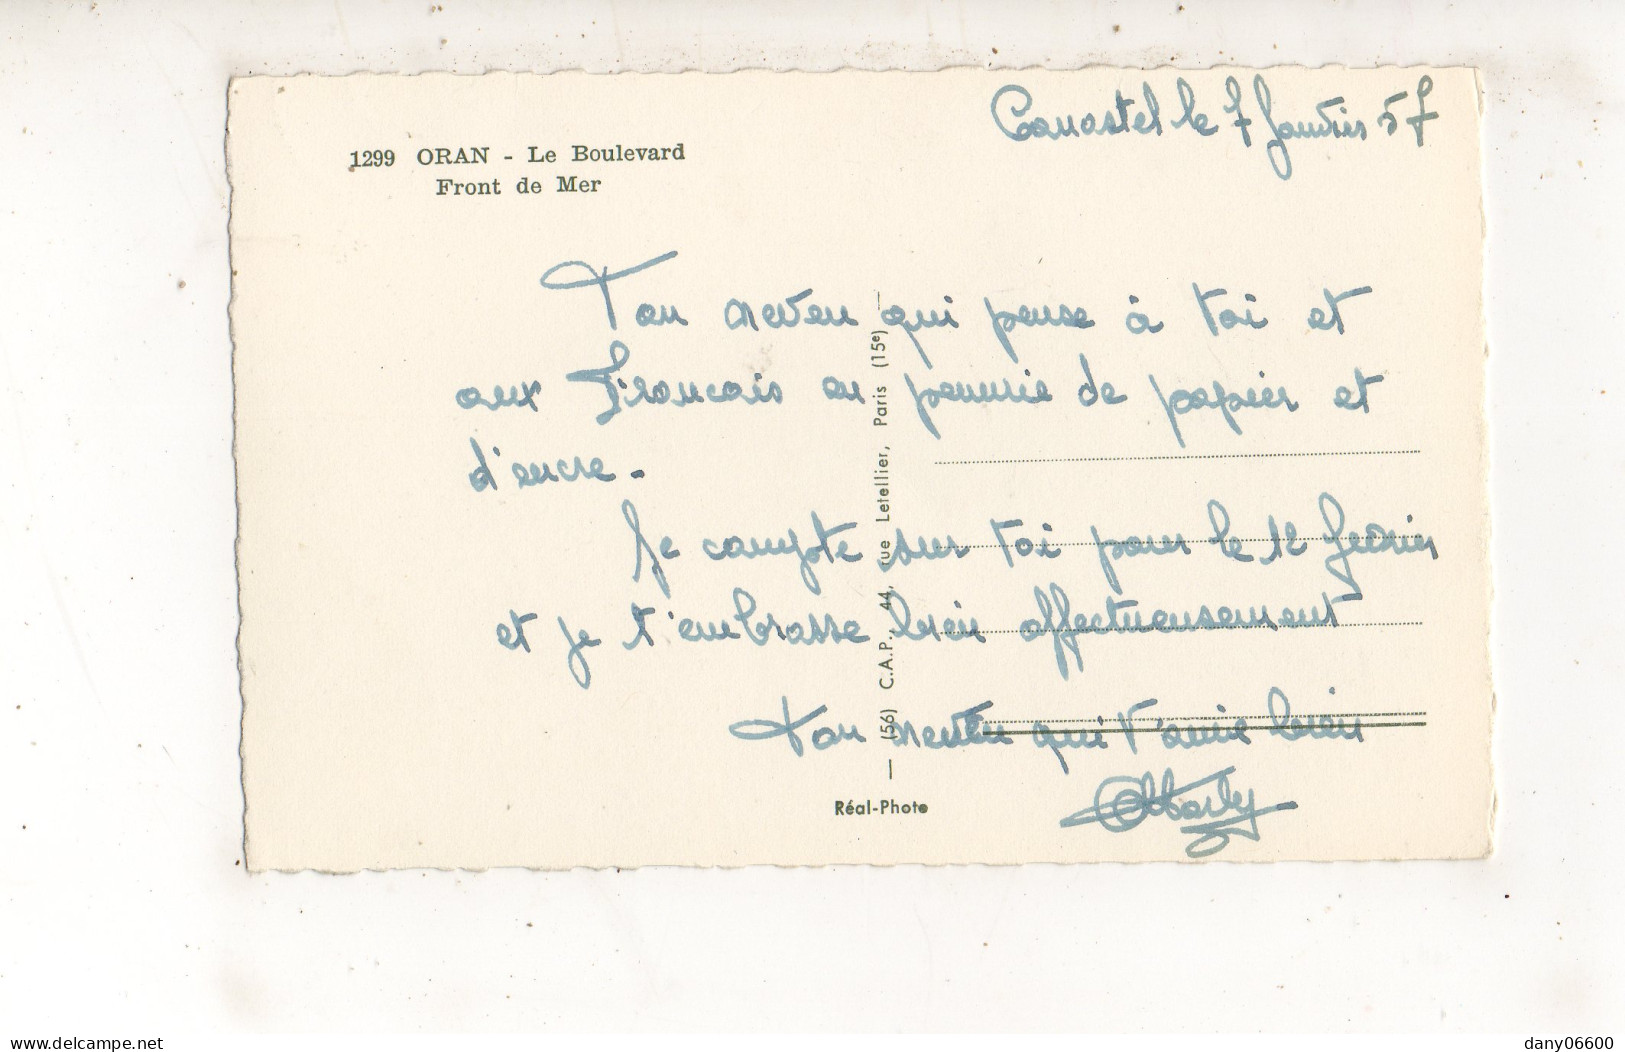 Canastel le 7 Janvier 57
1299 ORAN - Le Boulevard
Front de Mer
Ton neveu qui pense à toi et
aux Français en pénurie de papier et
d'encre.
Je compte sur toi pour le 12 février
et je t'embrasse bien affectueusement
ton neveu qui t'aime bien
(56) C.A.P., 44, rue Letellier, Paris (15e)
Réal-Photo
www.delcampe.net
dany06600